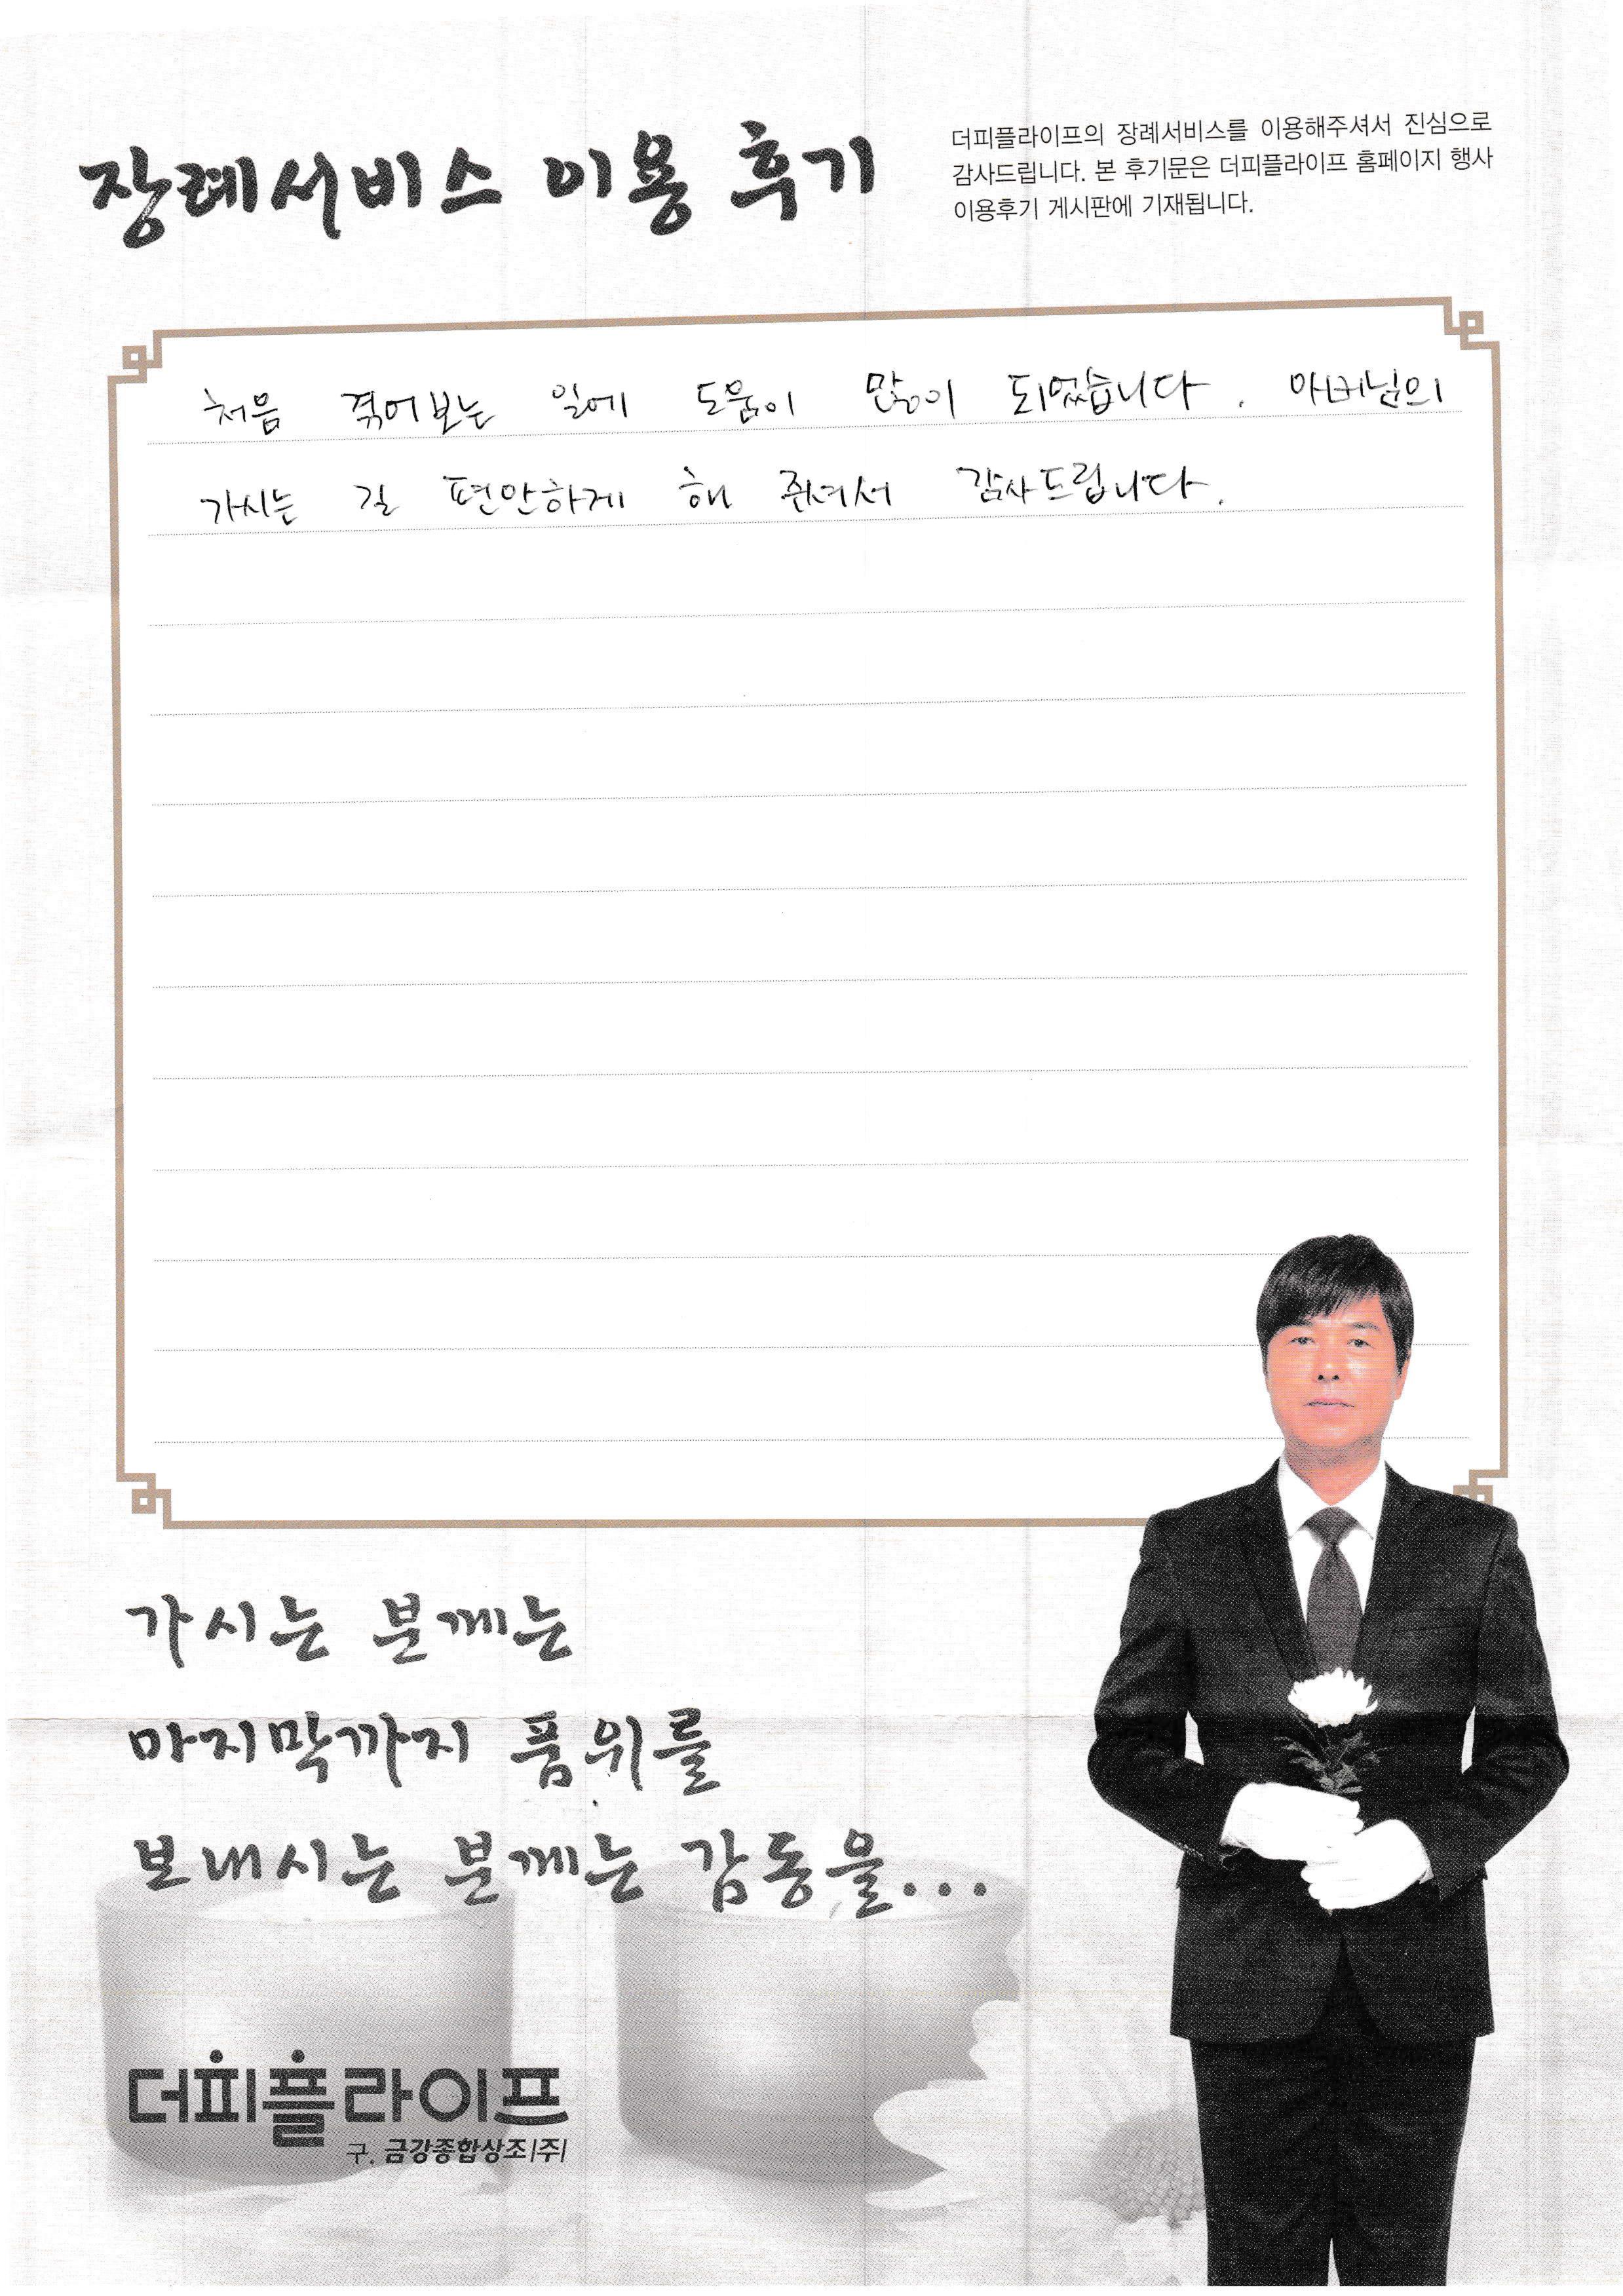 장례서비스 이용 후기
더피플라이프의 장례서비스를 이용해주셔서 진심으로
감사드립니다. 본 후기문은 더피플라이프 홈페이지 행사
이용후기 게시판에 기재됩니다.
처음 겪어보는 일에 도움이 많이 되었습니다. 아버님의
가시는 길 편안하게 해 주셔서 감사드립니다.
가시는 분께는
마지막까지 품위를
보내시는 분께는 감동을...
더피플라이프
구. 금강종합상조(주)